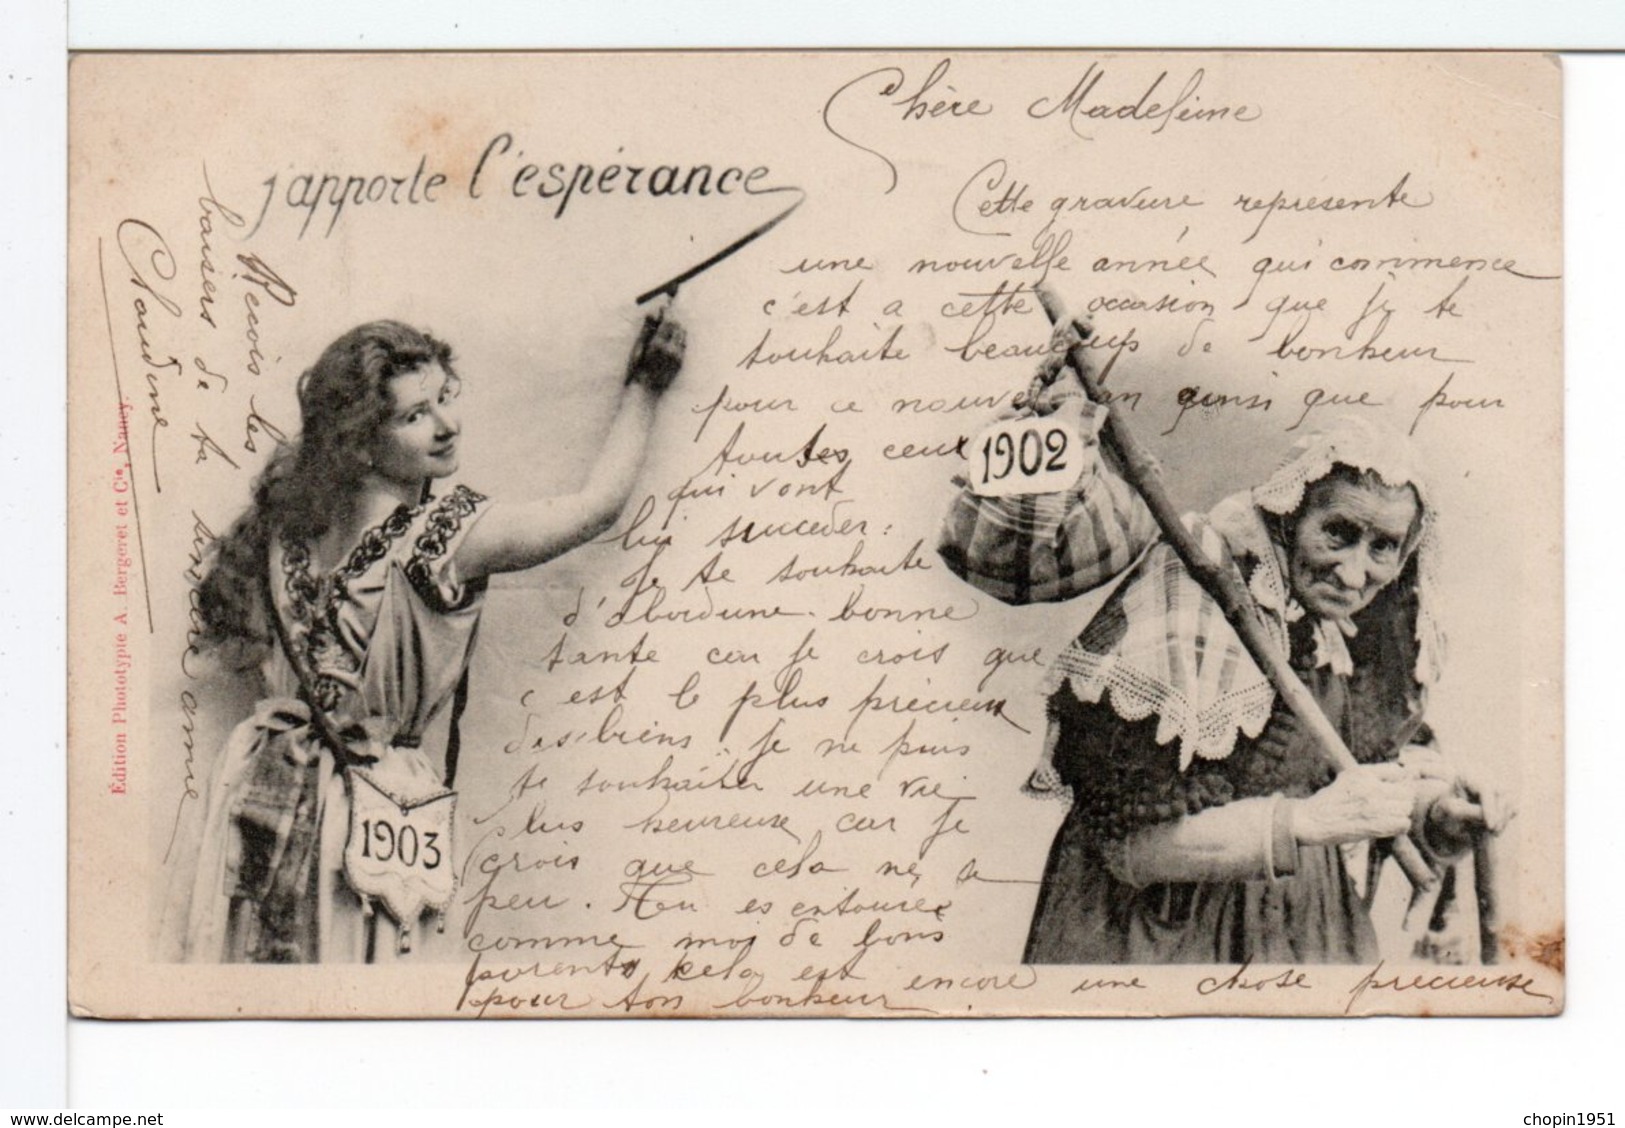 j'apporte l'espérance
Chère Madeleine
Cette gravure représente
une nouvelle année qui commence
c'est a cette occasion que je te
souhaite beaucoup de bonheur
pour ce nouvel an ainsi que pour
toutes ceux
qui vont
lui succeder :
Je te souhaite
d'abord une bonne
santé car je crois que
c'est le plus précieux
des biens. je ne puis
te souhaiter une vie
plus heureuse car je
crois que cela ne se
peu. Tu es entourée
comme moi de bons
parents, cela est encore une chose precieuse
pour ton bonheur
Recois les
baisers de ta sincère amie
Claudine
1902
1903
Édition Phototypie A. Bergeret et Cie, Nancy.
delcampe.net
chopin1951